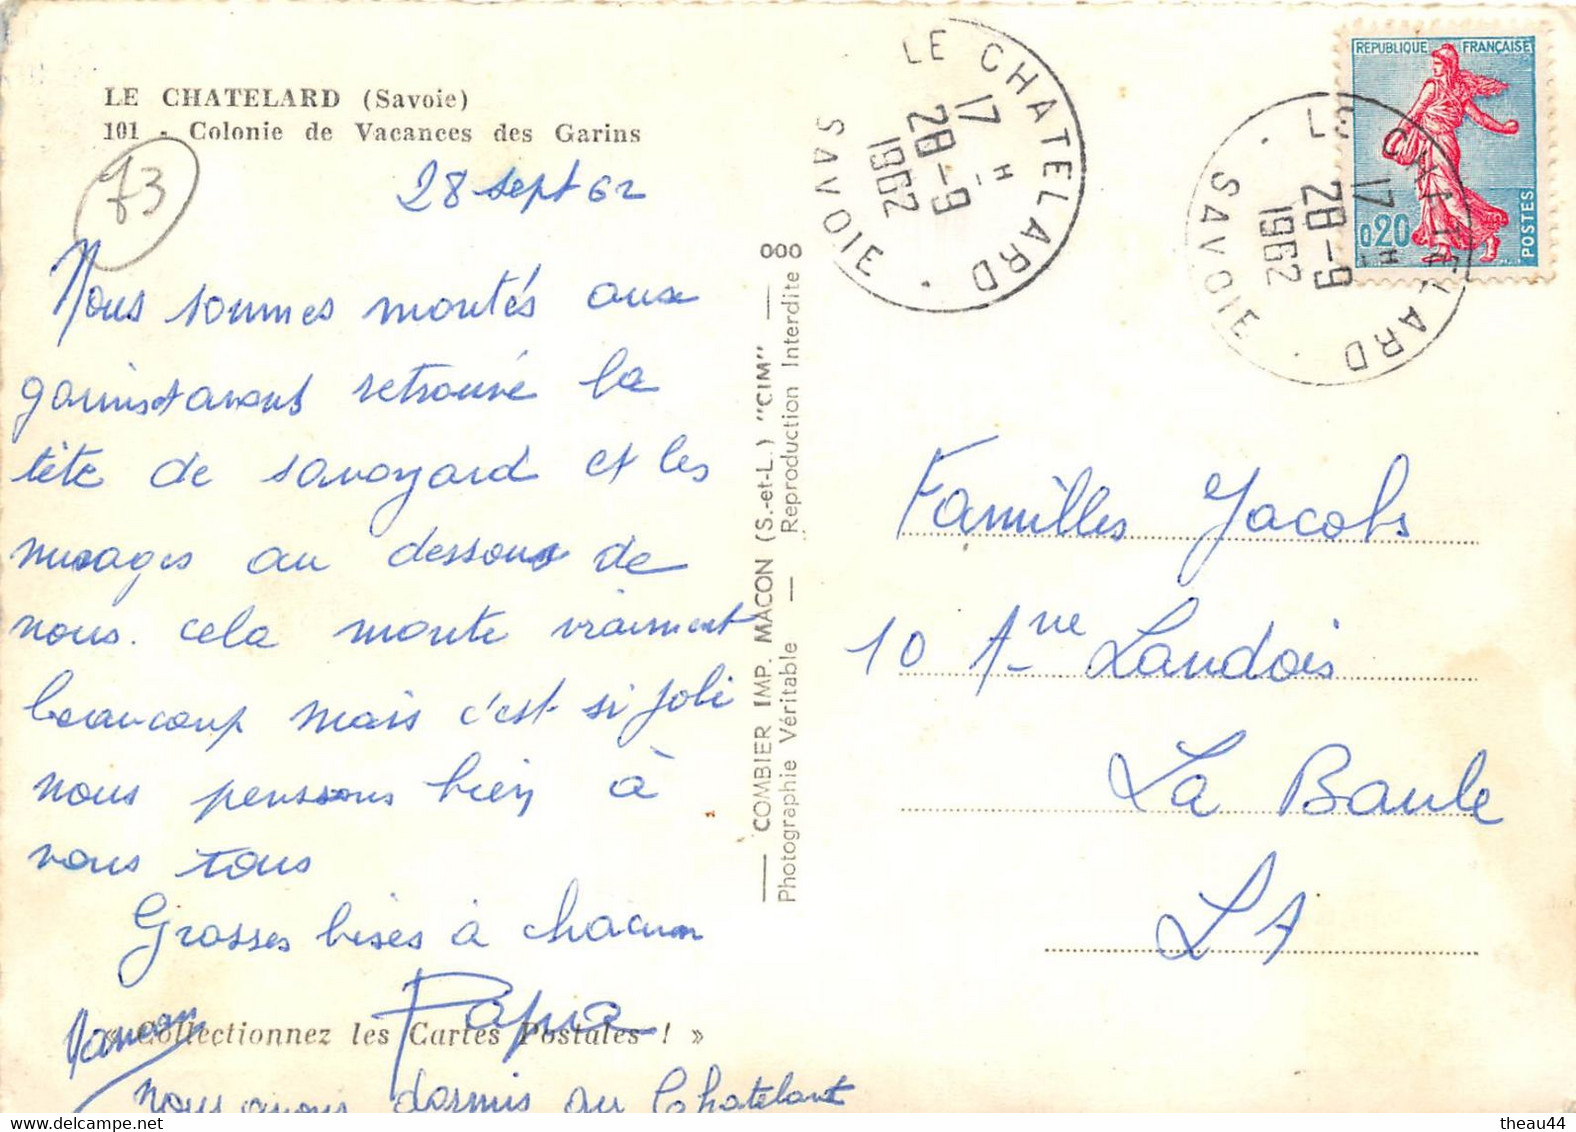 LE CHATELARD (Savoie)
101 - Colonie de Vacances des Garins
73
28 sept 62
Nous sommes montés aux
garins et avons retrouvé la
tête de savoyard et les
nuages au dessous de
nous. cela monte vraiment
beaucoup mais c'est si joli
nous pensons bien à
vous tous
Grosses bises à chacun
Papa
Maman
« Collectionnez les Cartes Postales ! »
Nous avons dormis au Chatelard
COMBIER IMP. MACON (S.-et-L.) "CIM" — 000
Photographie Véritable — Reproduction Interdite
LE CHATELARD
17 H
28-9
1962
SAVOIE
LE CHATELARD
17 H
28-9
1962
SAVOIE
REPUBLIQUE FRANÇAISE
0,20
POSTES
Familles Jacobs
10 Ave Landois
La Baule
LA
theau44